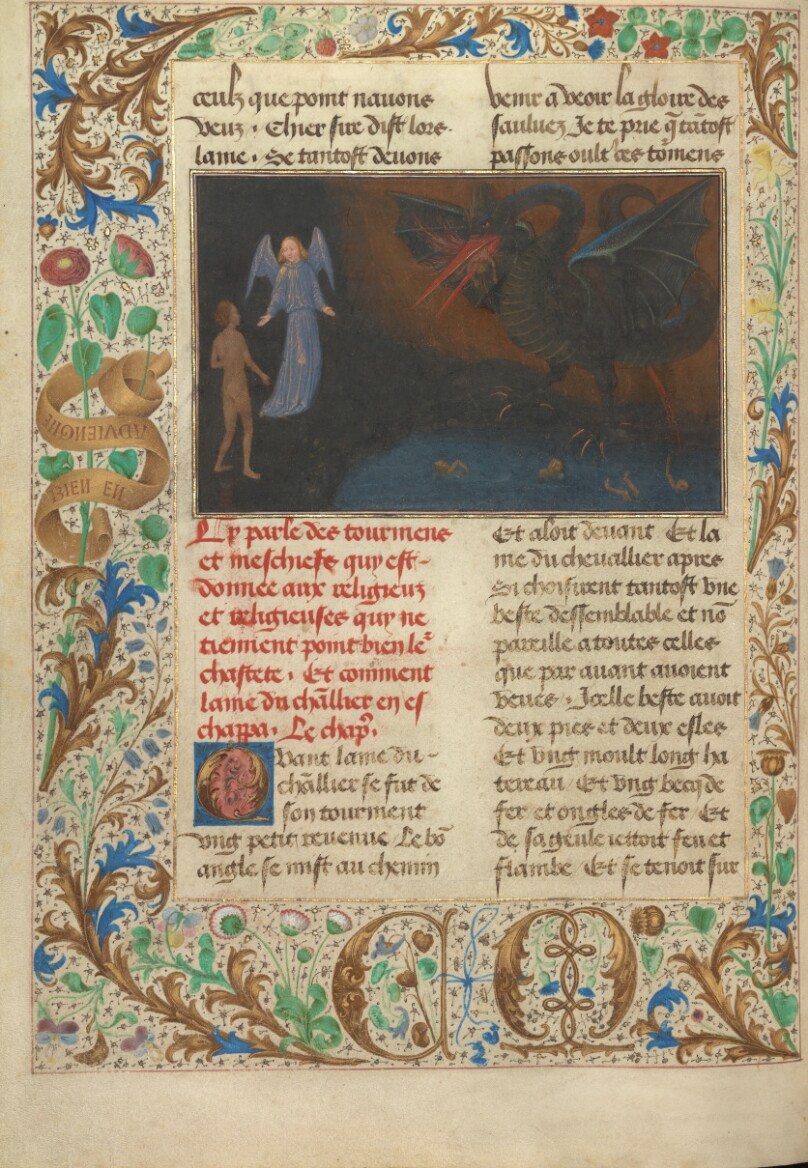 ceulz que point nauons
veuz . Chier sire dist lors .
lame . Se tantost deuons
venir a veoir la gloire des
sauluez Je te prie q̄ tātost
passons oult' ces tōmens
Cy parle des tourmens
et meschiefs quy est-
donnee aux religieux
et religieuses quy ne
tiennent point bien le'
chastete . Et comment
lame du chāllier en es
chappa . Le chap̄ .
Quant lame du-
chāllier se fut de
son tourment
vng petit reuenue Le bō
angle se mist au chemin
Et aloit deuant Et la
me du cheuallier apres
Si choisirent tantost vne
beste dessemblable et nō
pareille a toutes celles
que par auant auoient
veues . Icelle beste auoit
deux pies et deux esles
Et vng moult long ha
tereau Et vng becq de
fer et ongles de fer Et
de sa geule iettoit feu et
flambe Et se tenoit sur
BIEN EN
ADVIENGNE
C M